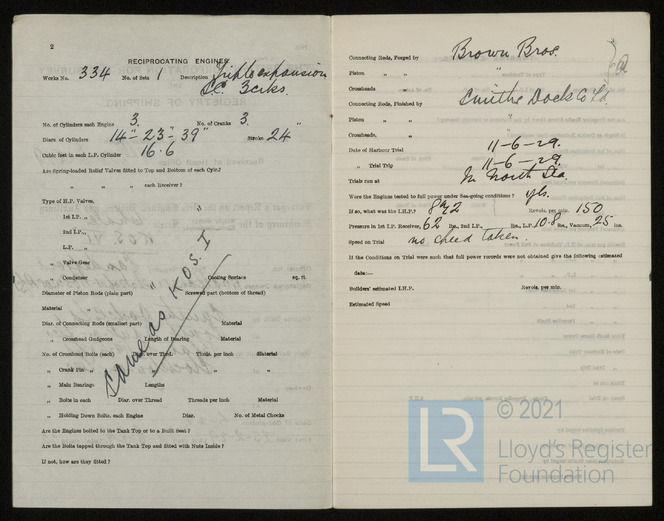 2
RECIPROCATING ENGINES
Works No. 334 No. of Sets 1 Description Triple expansion
No. of Cylinders each Engine 3. No. of Cranks 3.
Diars of Cylinders 14"- 23"- 39" Stroke 24"
Cubic feet in each L.P. Cylinder 16.6
Are Spring-loaded Relief Valves fitted to Top and Bottom of each Cylr.?
" " " " each Receiver?
Type of H.P. Valves,
" 1st I.P. "
" 2nd I.P. "
" L.P. "
" Valve Gear
" Condenser Cooling Surface sq. ft.
Diameter of Piston Rods (plain part) Screwed part (bottom of thread)
Material
Diar. of Connecting Rods (smallest part) Material
" Crosshead Gudgeons Length of Bearing Material
No. of Crosshead Bolts (each) Diar. over Thrd. Thrds. per inch Material
" Crank Pin " " " "
" Main Bearings Lengths
" Bolts in each Diar. over Thread Threads per inch Material
" Holding Down Bolts, each Engine Diar. No. of Metal Chocks
Are the Engines bolted to the Tank Top or to a Built Seat?
Are the Bolts tapped through the Tank Top and fitted with Nuts Inside?
If not, how are they fitted?
Same as KOS. I
Connecting Rods, Forged by Brown Bros.
Piston " " "
Crossheads "
Connecting Rods, Finished by Smiths Dock Co Ld.
Piston " "
Crossheads, "
Date of Harbour Trial 11-6-29.
" Trial Trip 11-6-29.
Trials run at In North Sea.
Were the Engines tested to full power under Sea-going conditions? yes.
If so, what was the I.H.P.? Revols. per min. 150
Pressure in 1st I.P. Receiver, 62 lbs., 2nd I.P., lbs., L.P. 10.8 lbs., Vacuum, 25 ins.
Speed on Trial no speed taken.
If the Conditions on Trial were such that full power records were not obtained give the following estimated
data:—
Builders' estimated I.H.P. Revols. per min.
Estimated Speed
LR © 2021
Lloyd's Register
Foundation